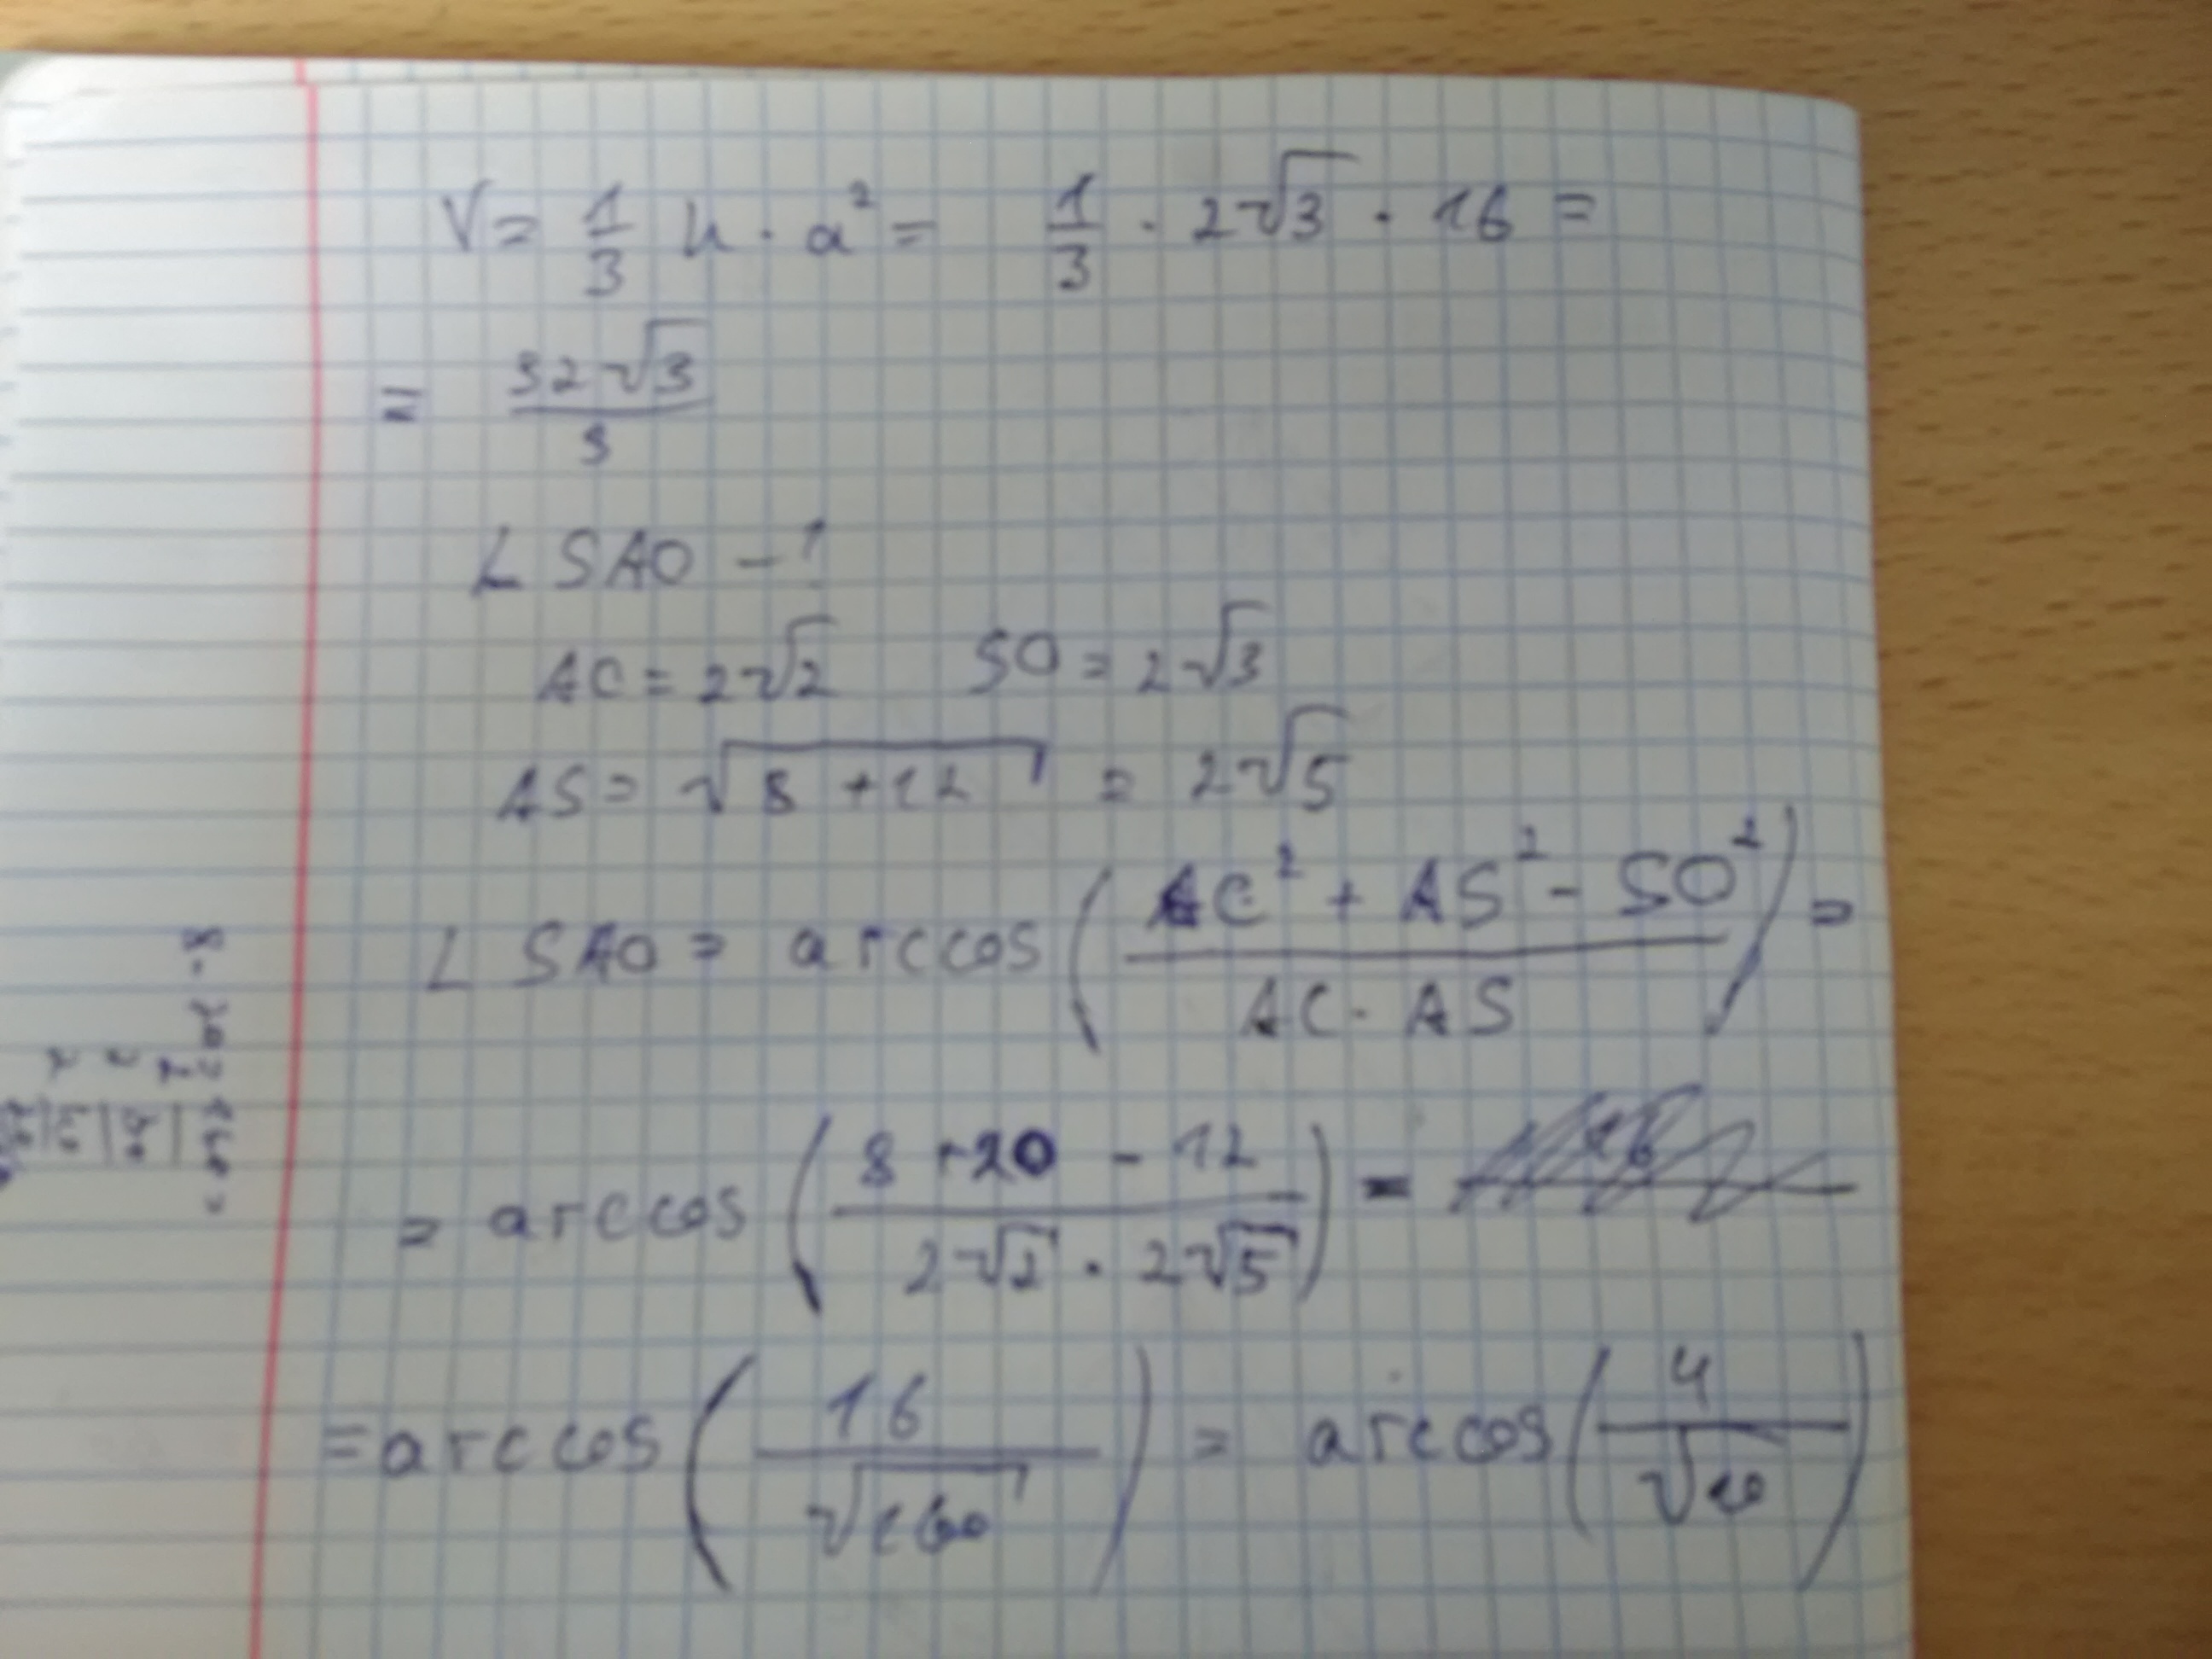 V = 1/3 h · a² = 1/3 · 2√3 · 16 =
= 32√3/3
∠ SAO - ?
AC = 2√2 SO = 2√3
AS = √(8 + 12) = 2√5
∠ SAO = arccos ( (AC² + AS² - SO²) / (AC · AS) ) =
= arccos ( (8 + 20 - 12) / (2√2 · 2√5) ) =
= arccos ( 16 / √160 ) = arccos ( 4 / √10 )